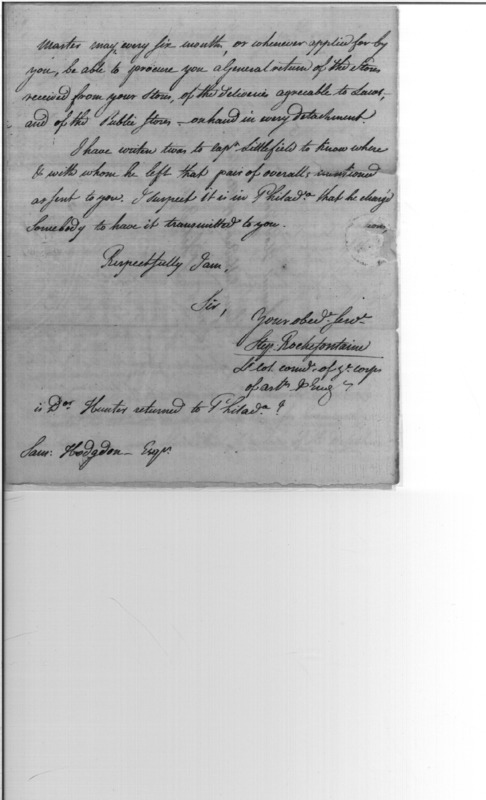 Master may every six month, or whenever applied for by
you, be able to procure you a General return of the Stores
received from your Store, of the deliveries agreable to Laws,
and of the Public Stores - on hand in every detachment.
I have writen twas to Capt. Littlefield to know where
& with whom he left that pair of overalls mentioned
as sent to you. I suspect it is in Philada. that he charg'd
Somebody to have it transmitted to you.
Respectfully I am,
Sir,
Your obedt. Servt.
Step. Rochefontaine
Lt. Col. comdt. of ye. corps
of arts. & Eng
is Dor. Hunter returned to Philada. ?
Saml. Hodgdon - Esqr.